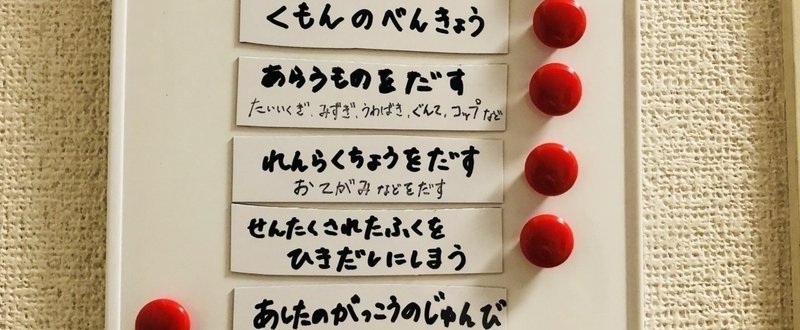 くもんのべんきょう
あらうものをだす
たいいくぎ、みずぎ、うわばき、ぐんて、コップなど
れんらくちょうをだす
おてがみなどをだす
せんたくされたふくを
ひきだしにしまう
あしたのがっこうのじゅんび